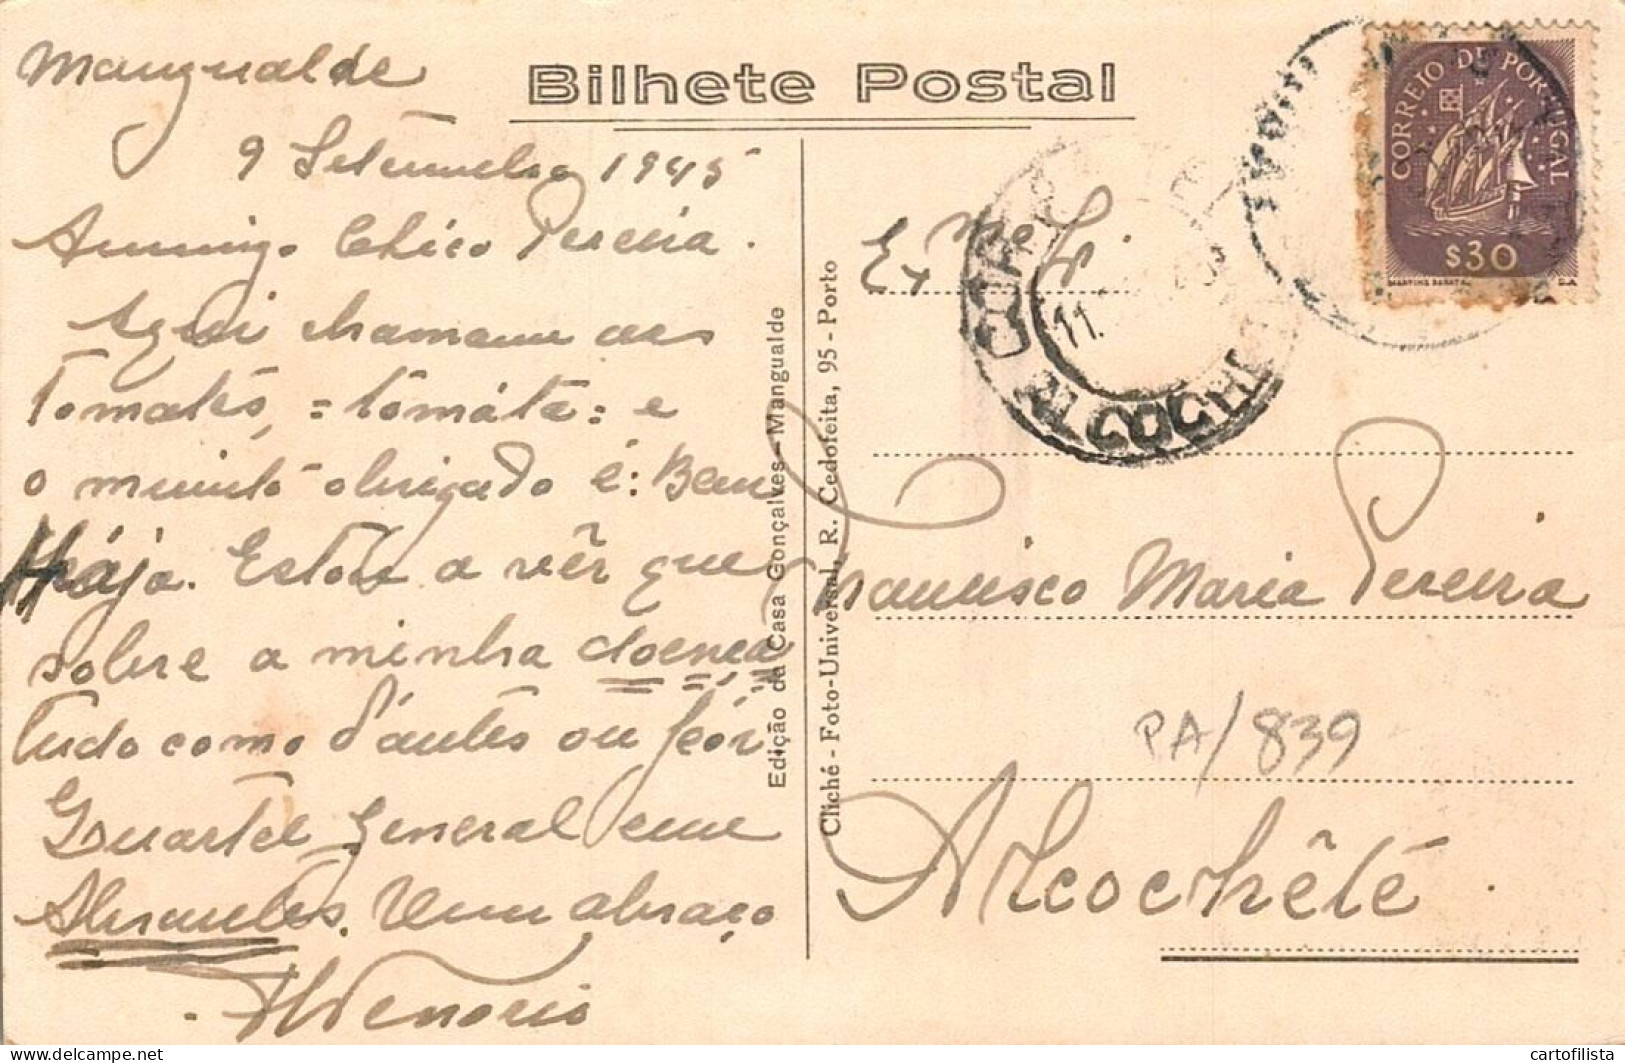 Bilhete Postal
Mangualde
9 Setembro 1945
Amigo Chico Pereira.
Aqui chamam aos
Tomates, = tomáta = e
o muinto obrigado é: Bem
Hája. Estou a vêr que
sobre a minha doença
tudo como d'antes ou
Quartel General em
Abrantes. Um abraço
Edição da Casa Gonçalves - Mangualde
Cliché - Foto-Universal, R. Cedofeita, 95 - Porto
CORREIO DE PORTUGAL
$30
ALCOCHETE
11.
Exmo Sr.
Francisco Maria Pereira
PA/839
Alcochête.
delcampe.net
cartofilista